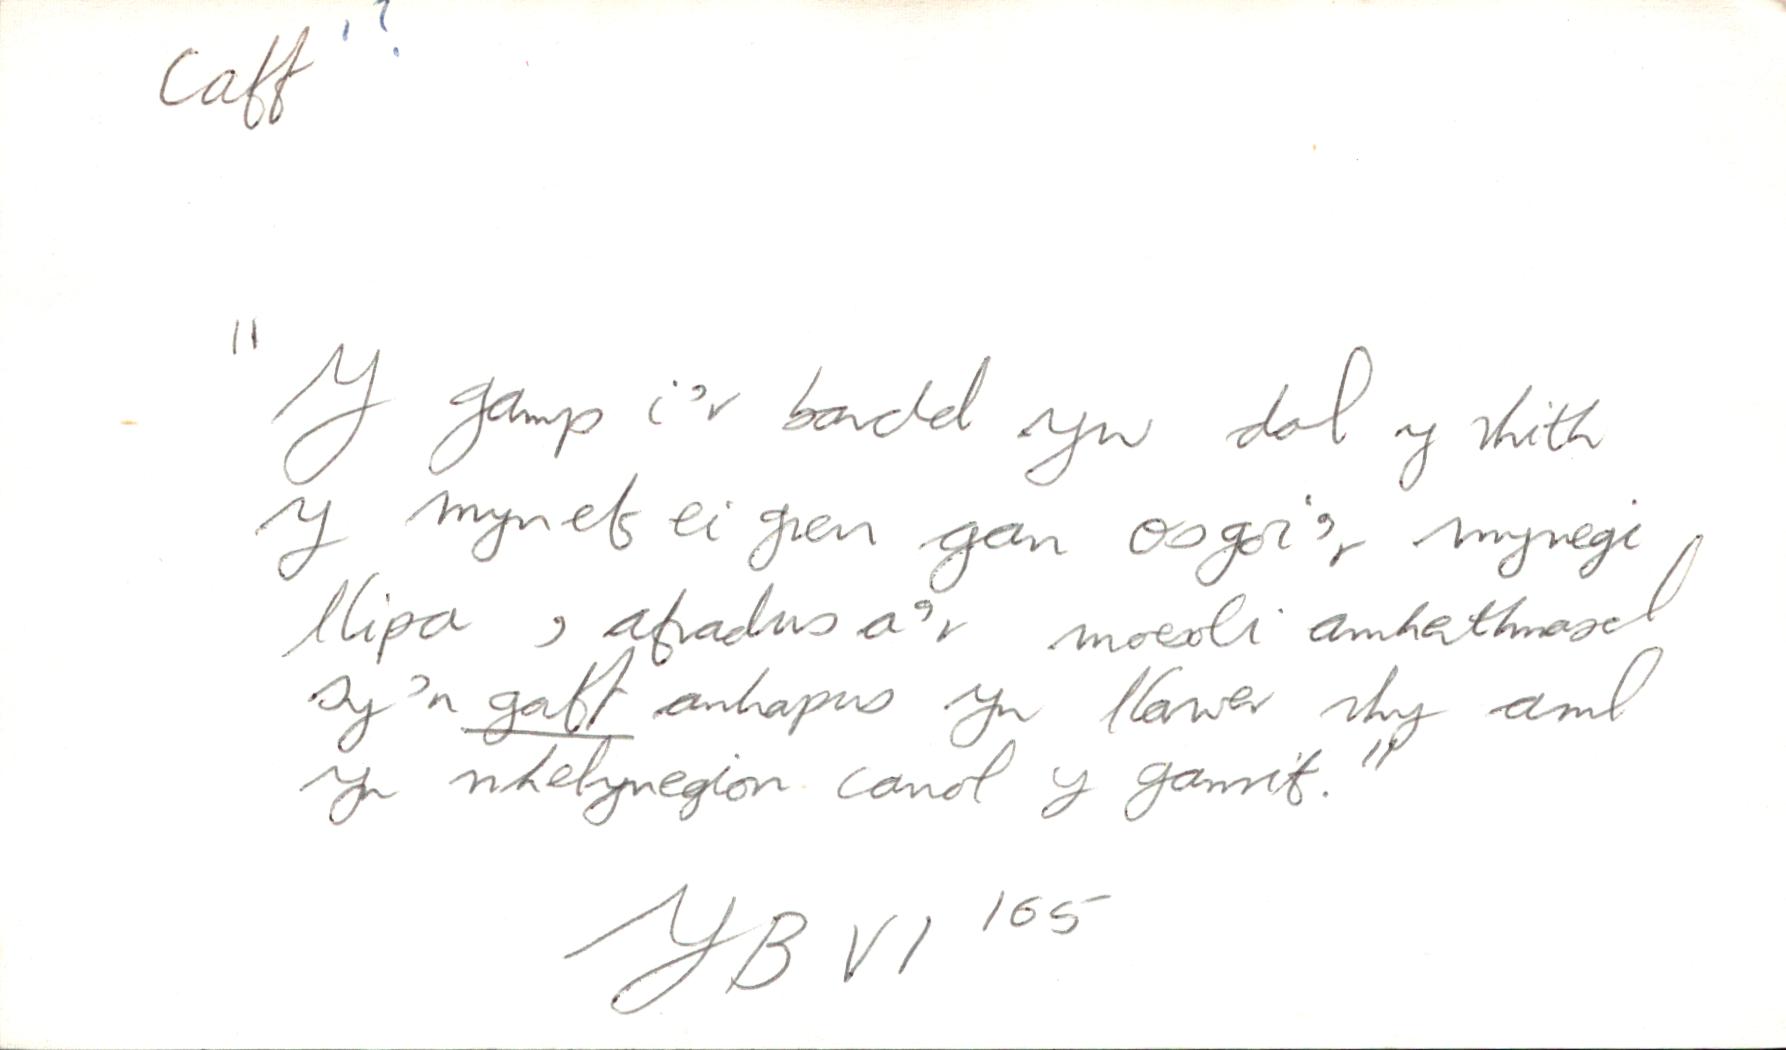 Caff ¹?
"Y gamp i'r bardd yw dal y rhith
y myneb ei greu gan osgoi'r mynegi
llipa, afradus a'r moesoli amherthnasol
sy'n gaff anhapus yn llawer rhy aml
yn nhelynegion canol y ganrif."
YB VI 165